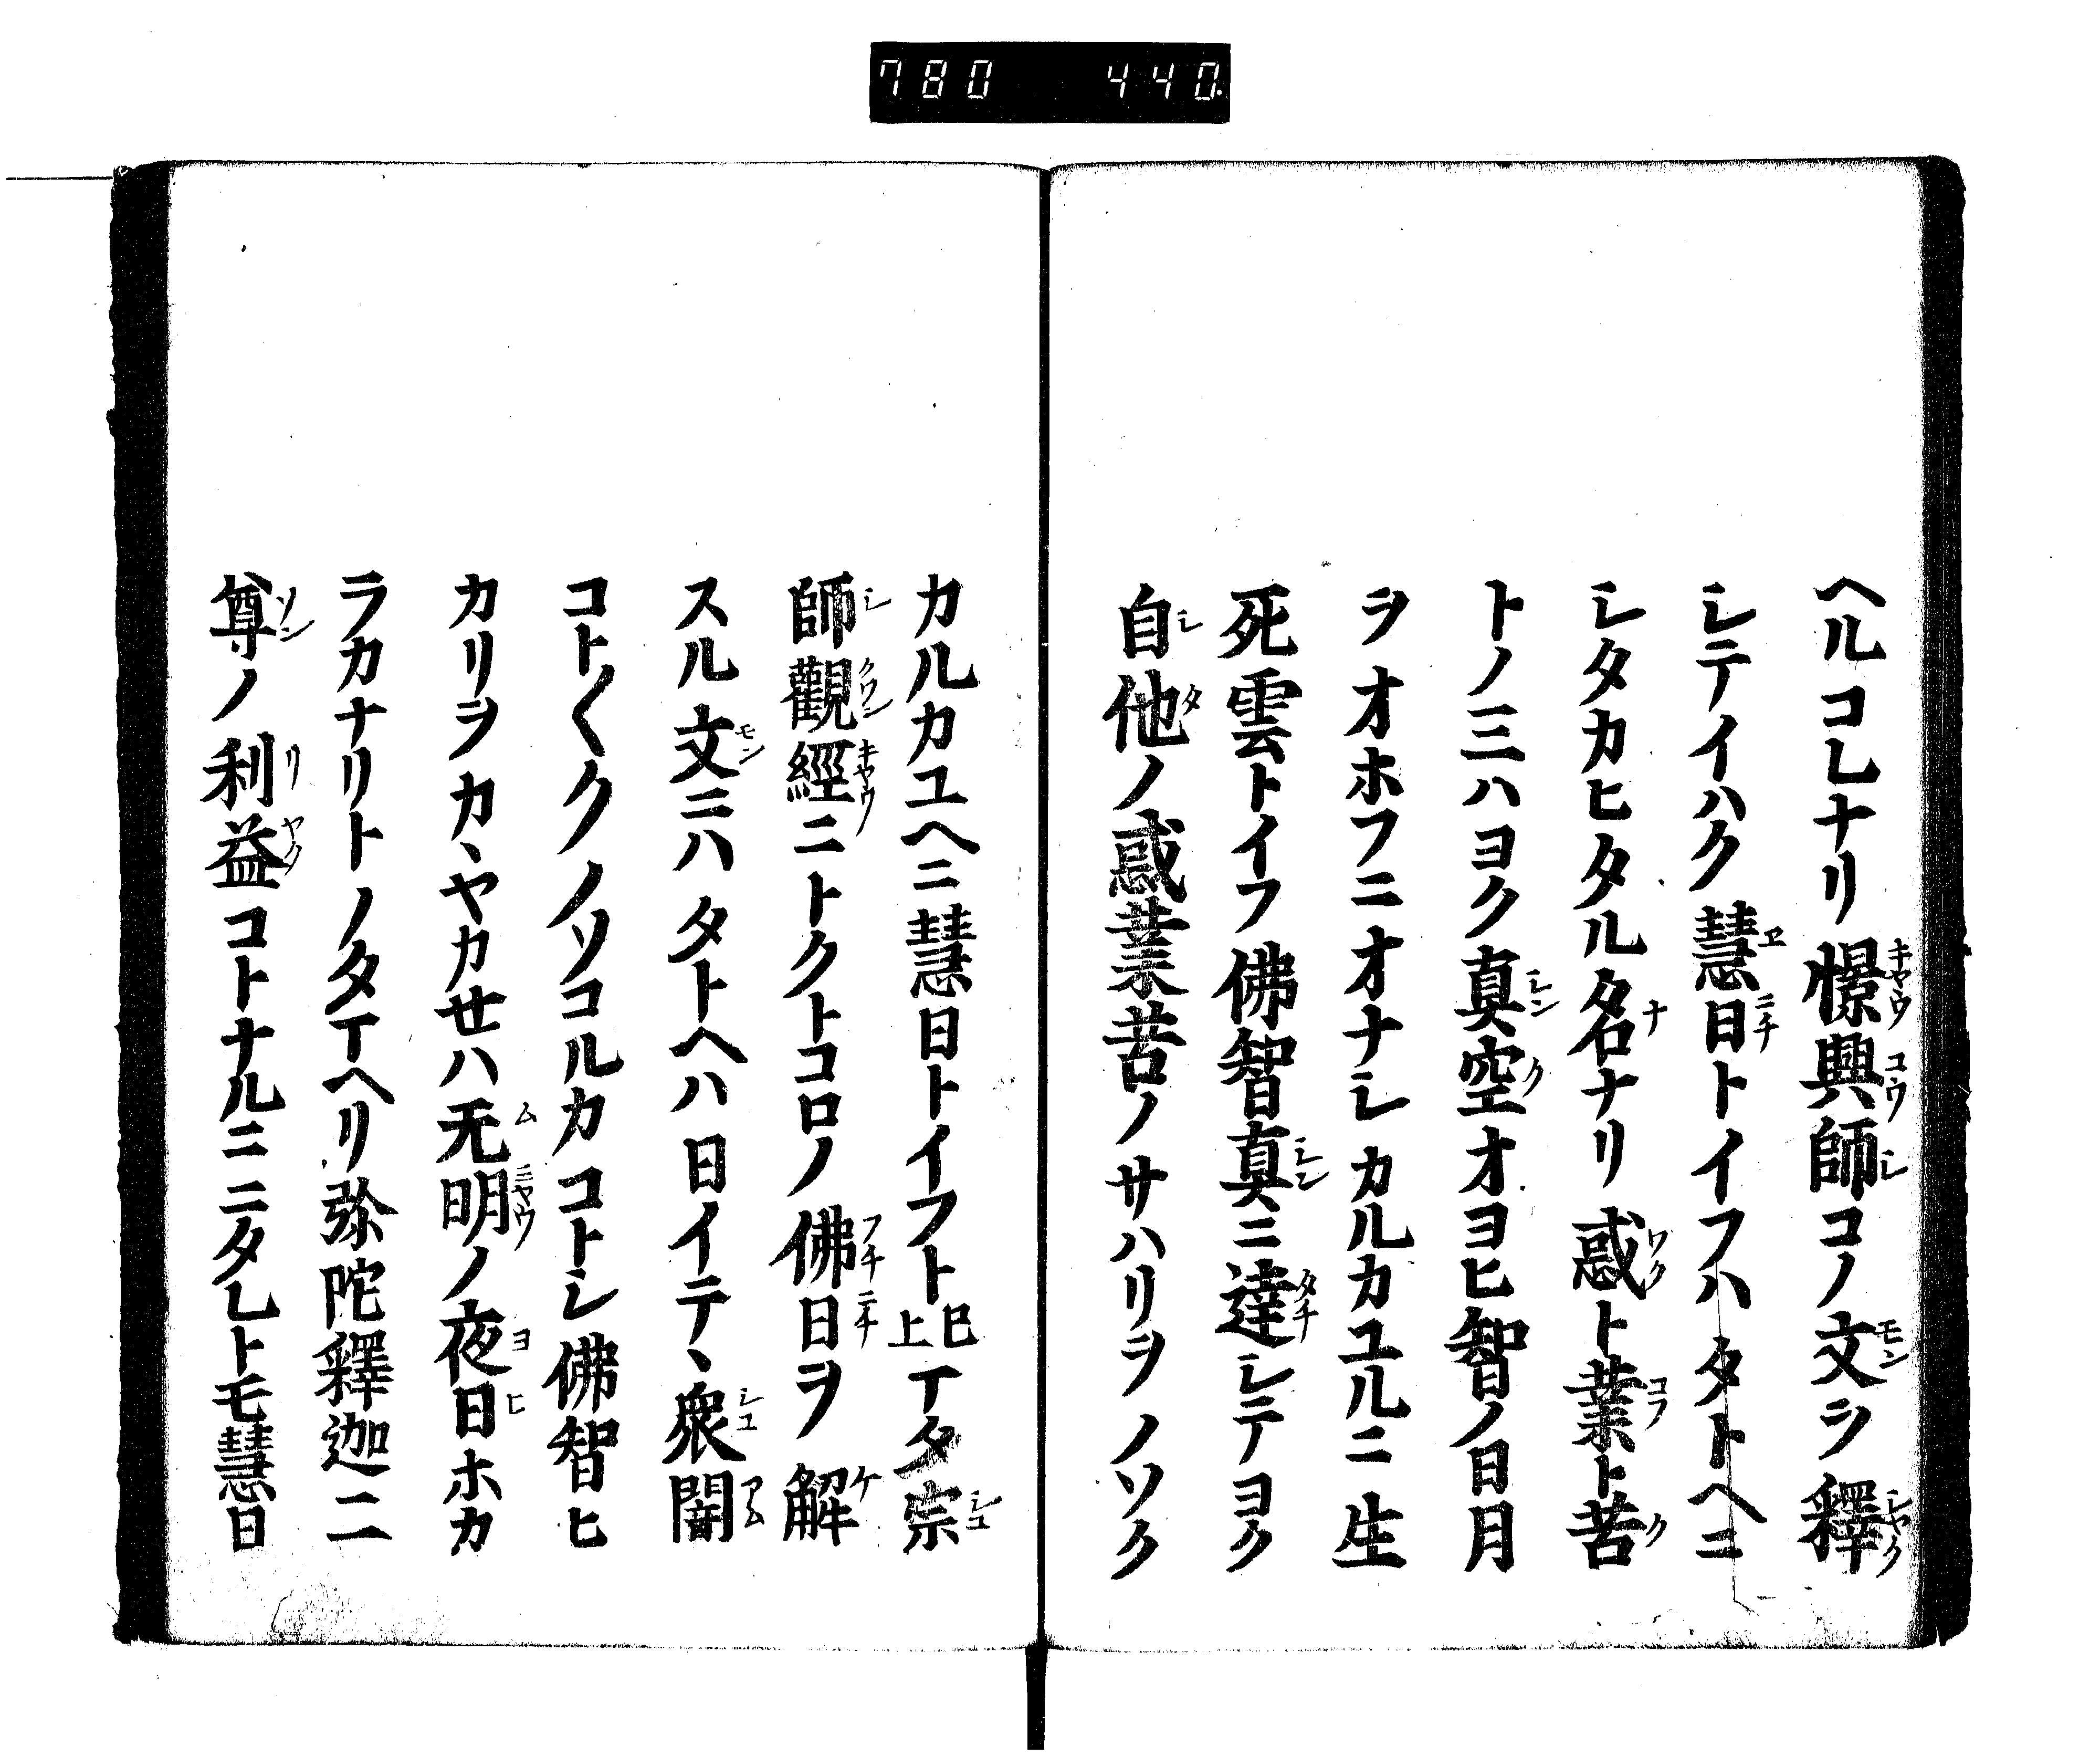 780 440.
ヘルコレナリ憬興師コノ文ヲ釋
シテイハク慧日トイフハタトヘニ
シタカヒタル名ナリ惑ト業ト苦
トノ三ハヨク真空オヨヒ智ノ日月
ヲオホフニオナシカルカユルニ生
死雲トイフ佛智真ニ達シテヨク
自他ノ惑業苦ノサハリヲノソク
カルカユヘニ慧日トイフト已上アタ宗
師觀經ニトクトコロノ佛日ヲ解
スル文ニハタトヘハ日イテヽ衆闇
コト〱クノソコルカコトシ佛智ヒ
カリヲカヽヤカセハ无明ノ夜日ホカ
ラカナリトノタマヘリ弥陀釋迦二
尊ノ利益コトナルニニタレトモ慧日